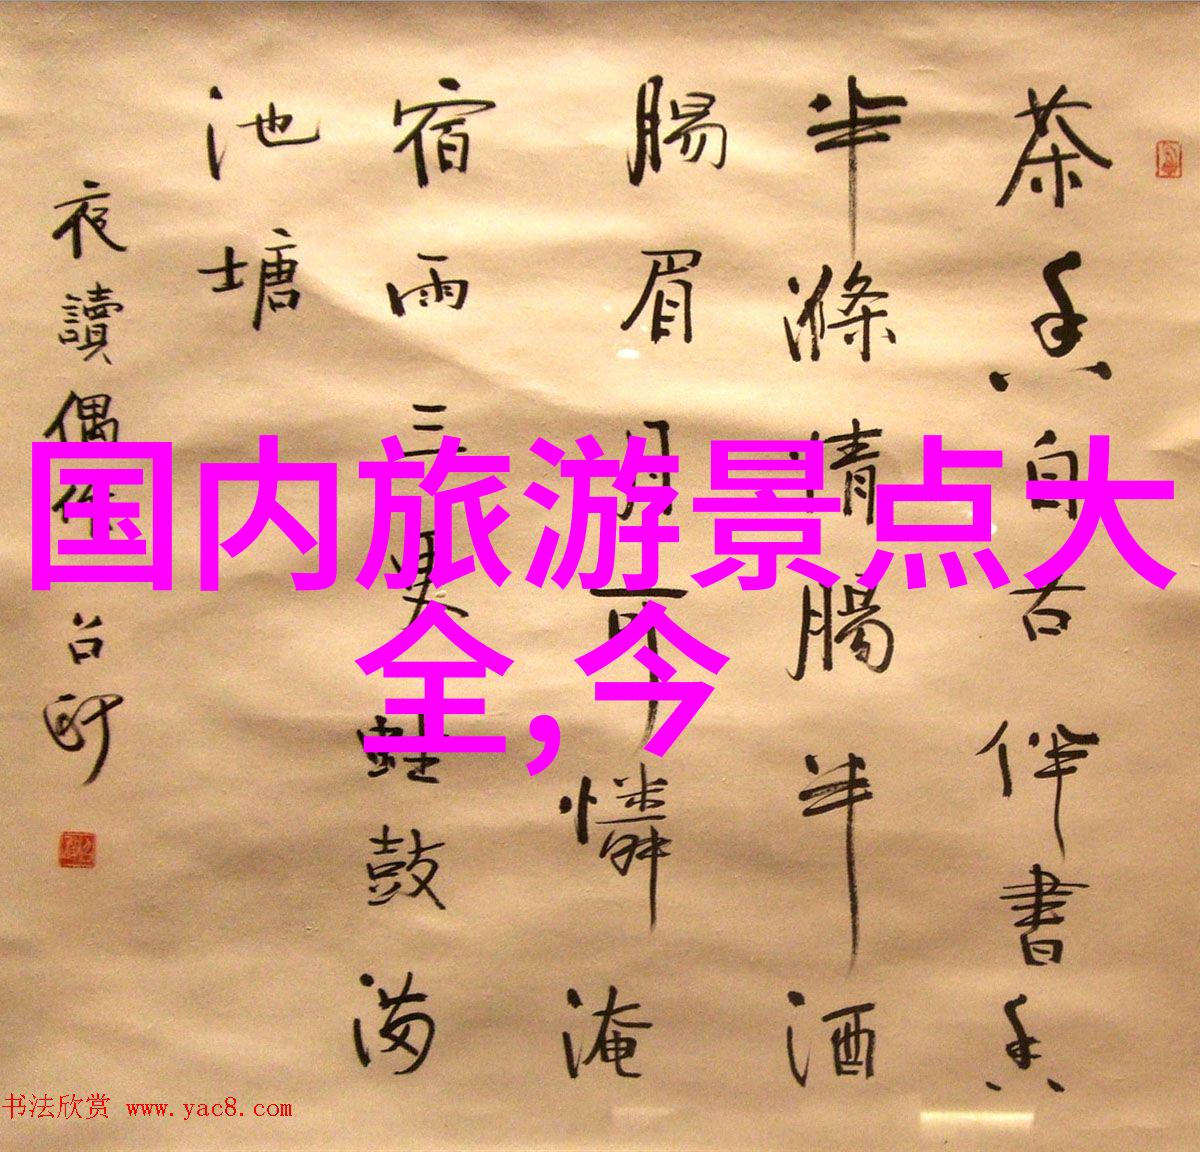 国内旅游景点大
全,今
茶香自古伴書香
半滌清腸半酒
腸眉月可憐淹
宿雨三更蛙鼓满
池塘
夜讀偶作
书法欣赏 www.yac8.com